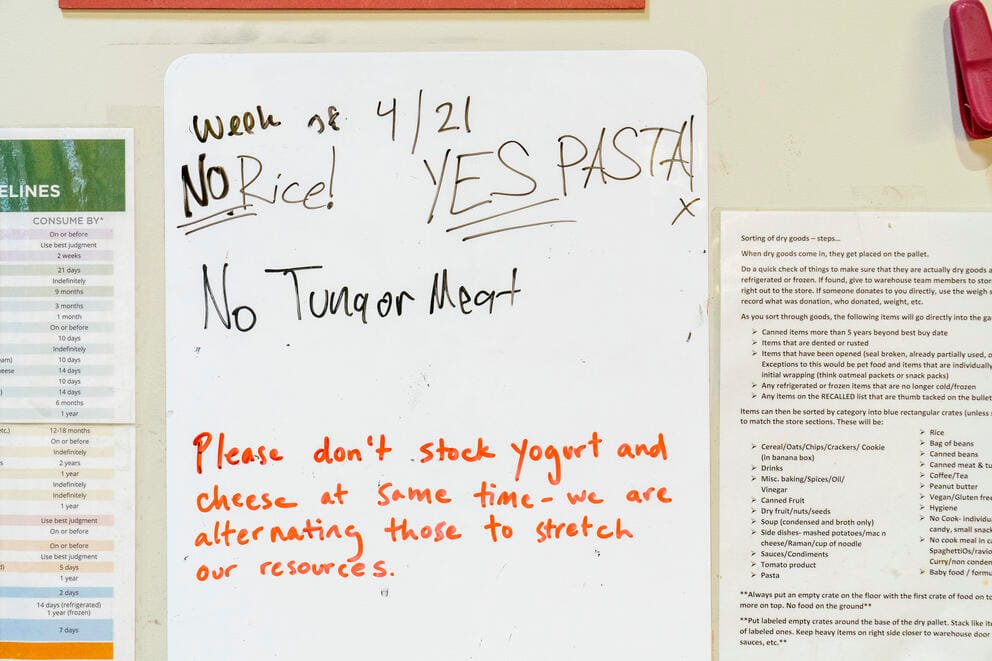 Week of 4/21
NO Rice! YES PASTA!
x
No Tuna or Meat
Please don't stock yogurt and
cheese at same time - we are
alternating those to stretch
our resources.
ELINES
CONSUME BY*
On or before
Use best judgment
2 weeks
21 days
Indefinitely
9 months
3 months
1 month
On or before
10 days
Indefinitely
10 days
14 days
10 days
14 days
6 months
1 year
etc.) 12-18 months
On or before
Indefinitely
2 years
1 year
Indefinitely
Indefinitely
1 year
Use best judgment
On or before
On or before
Use best judgment
5 days
1 year
2 days
14 days (refrigerated)
1 year (frozen)
7 days
Sorting of dry goods – steps...
When dry goods come in, they get placed on the pallet.
Do a quick check of things to make sure that they are actually dry goods a
refrigerated or frozen. If found, give to warehouse team members to stor
right out to the store. If someone donates to you directly, use the weigh s
record what was donation, who donated, weight, etc.
As you sort through goods, the following items will go directly into the ga
➢ Canned items more than 5 years beyond best buy date
➢ Items that are dented or rusted
➢ Items that have been opened (seal broken, already partially used, o
Exceptions to this would be pet food and items that are individually
initial wrapping (think oatmeal packets or snack packs)
➢ Any refrigerated or frozen items that are no longer cold/frozen
➢ Any items on the RECALLED list that are thumb tacked on the bullet
Items can then be sorted by category into blue rectangular crates (unless s
to match the store sections. These will be:
➢ Cereal/Oats/Chips/Crackers/ Cookie
(in banana box)
➢ Drinks
➢ Misc. baking/Spices/Oil/
Vinegar
➢ Canned Fruit
➢ Dry fruit/nuts/seeds
➢ Soup (condensed and broth only)
➢ Side dishes- mashed potatoes/mac n
cheese/Raman/cup of noodle
➢ Sauces/Condiments
➢ Tomato product
➢ Pasta
➢ Rice
➢ Bag of beans
➢ Canned beans
➢ Canned meat & tu
➢ Coffee/Tea
➢ Peanut butter
➢ Vegan/Gluten free
➢ Hygiene
➢ No Cook- individu
candy, small snack
➢ No cook meal in ca
SpaghettiOs/ravio
Curry/non conden
➢ Baby food / formu
**Always put an empty crate on the floor with the first crate of food on to
more on top. No food on the ground**
**Put labeled empty crates around the base of the dry pallet. Stack like ite
of labeled ones. Keep heavy items on right side closer to warehouse door
sauces, etc.**